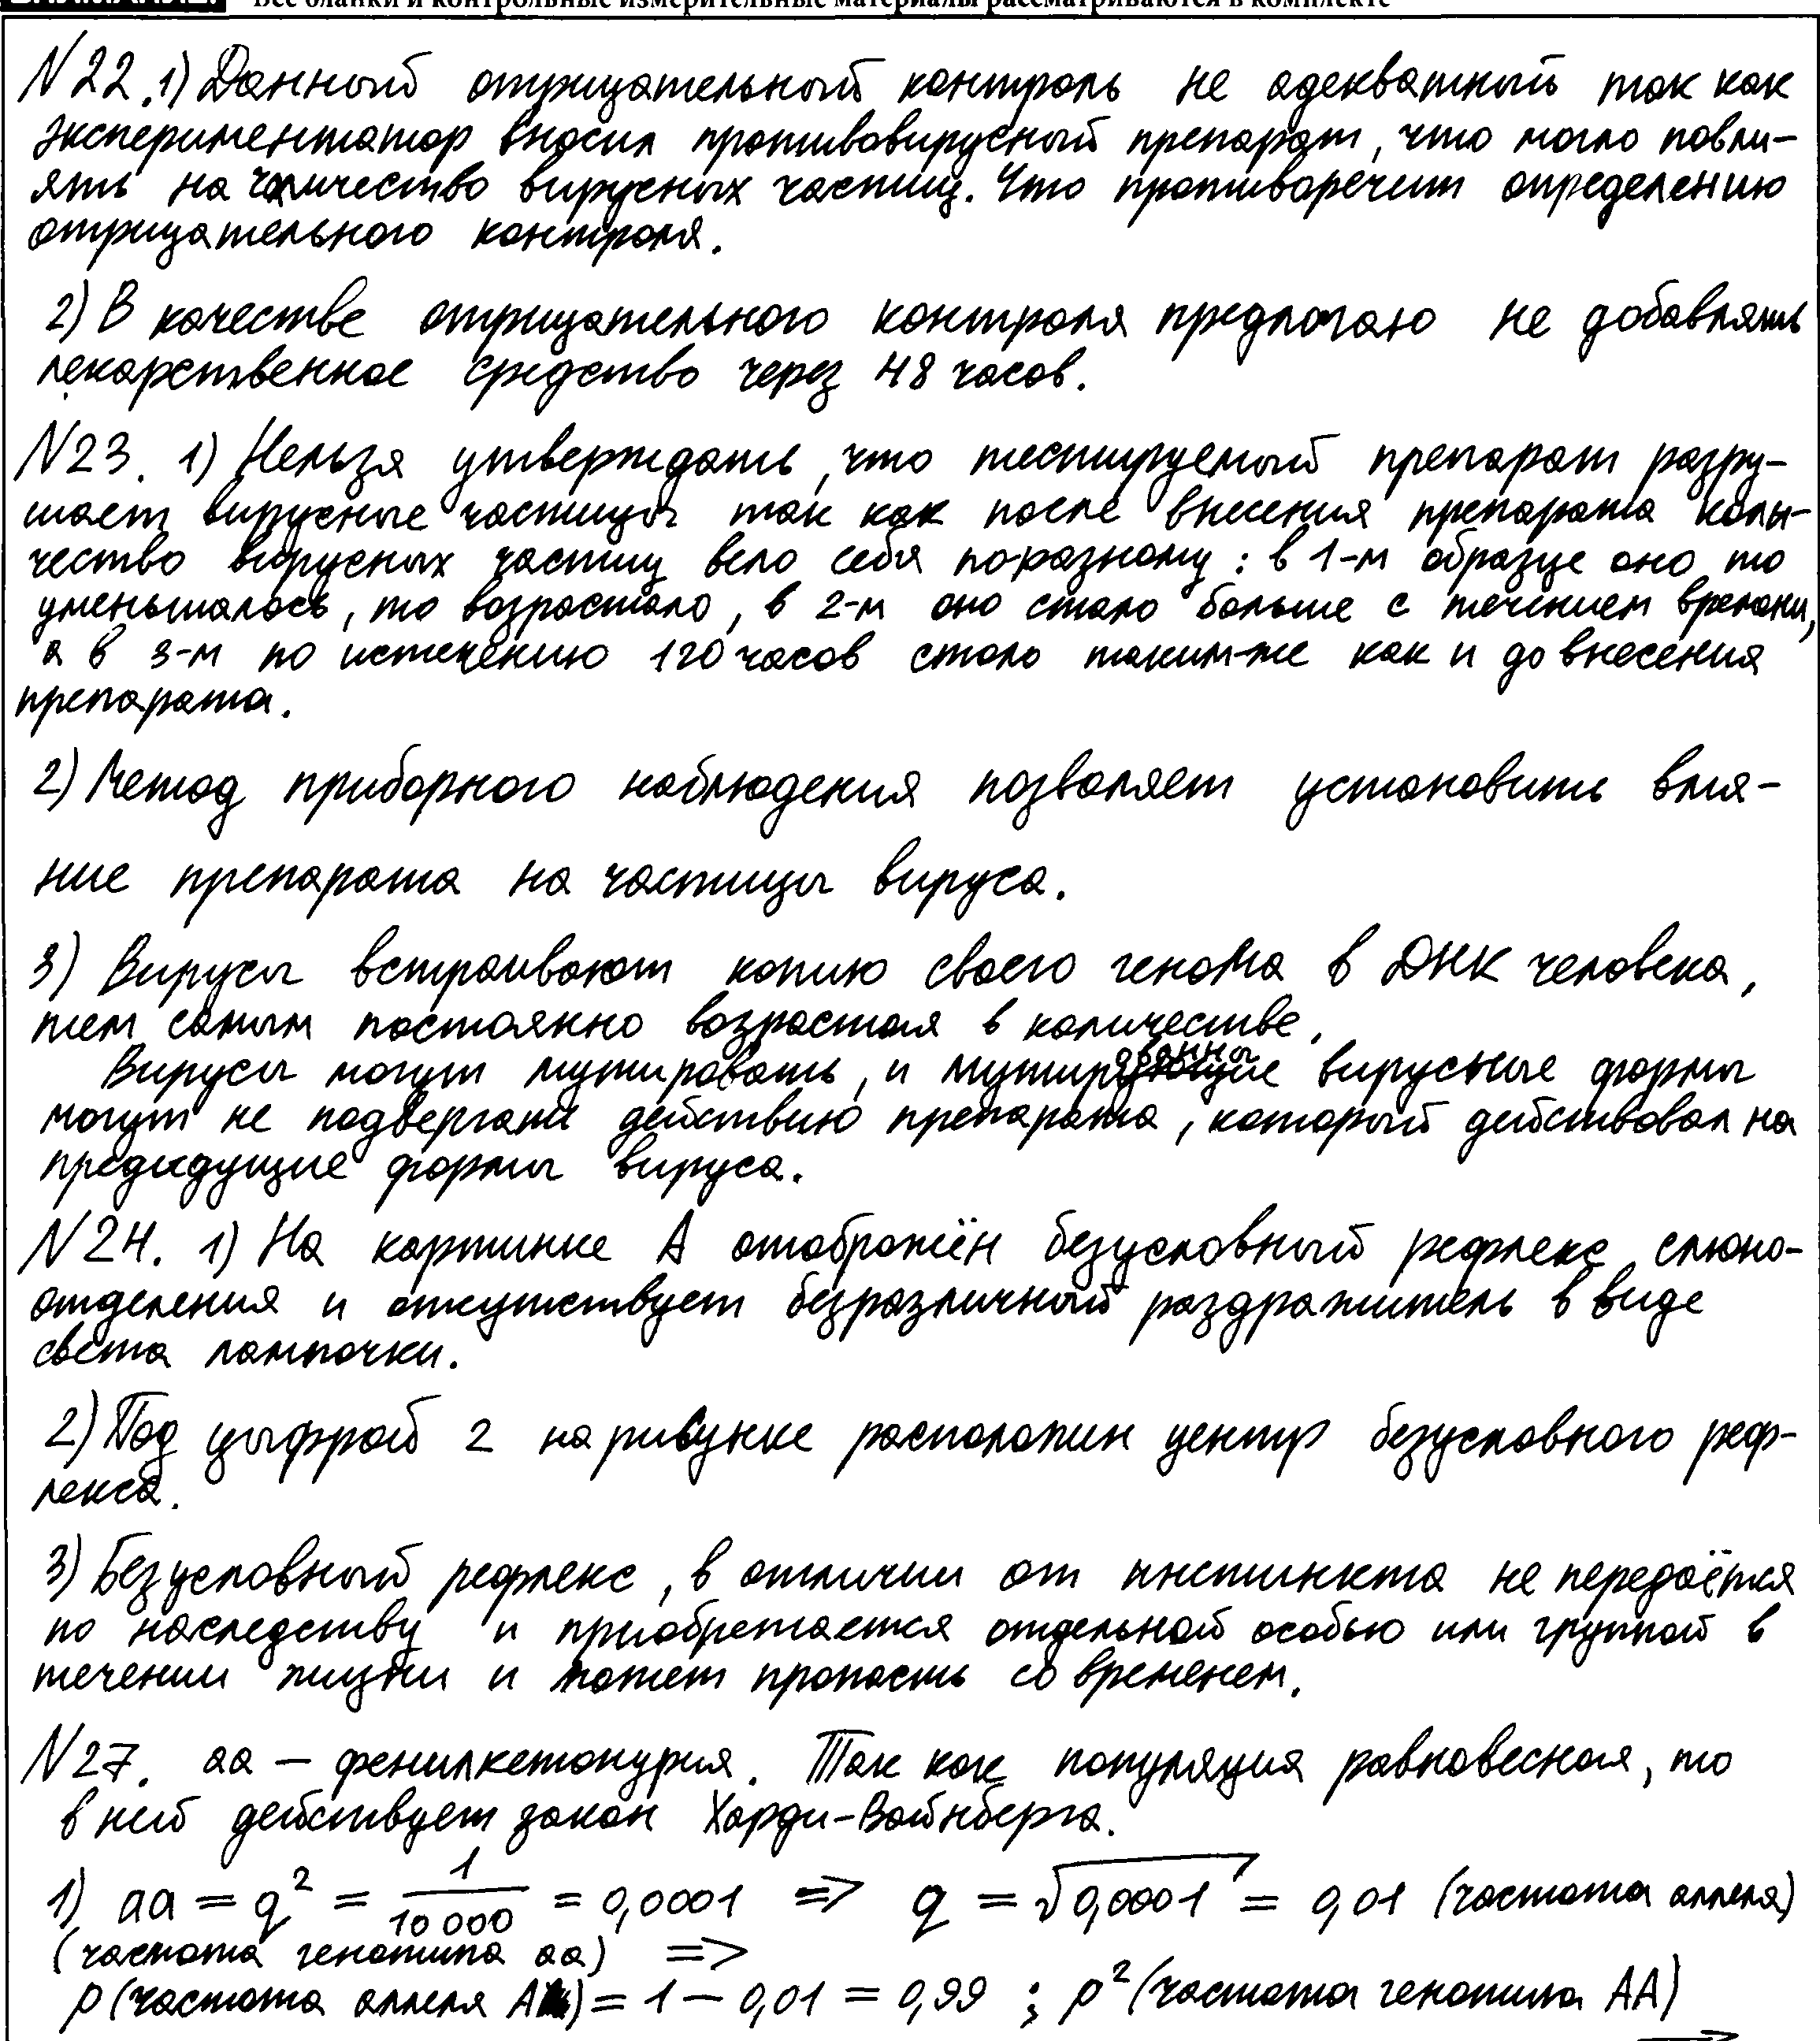 Все бланки и контрольные измерительные материалы рассматриваются в комплекте
N22. 1) Данный отрицательный контроль не адекватный так как
экспериментатор вносил противовирусный препарат, что могло повли-
ять на количество вирусных частиц. Что противоречит определению
отрицательного контроля.
2) В качестве отрицательного контроля предлогаю не добавлять
лекарственное средство через 48 часов.
N23. 1) Нельзя утверждать, что тестируемый препарат разру-
шает вирусные частицы так как после внесения препарата коли-
чество вирусных частиц вело себя по-разному: в 1-м образце оно то
уменьшалось, то возрастало, в 2-м оно стало больше с течением времени,
а в 3-м по истечению 120 часов стало таким-же как и до внесения
препарата.
2) Метод приборного наблюдения позволяет установить влия-
ние препарата на частицы вируса.
3) Вирусы встраивают копию своего генома в ДНК человека,
тем самым постоянно возрастая в количестве.
Вирусы могут мутировать, и мутированные вирусные формы
могут не подвергать действию препарата, который действовал на
предидущие формы вируса.
N24. 1) На картинке А отображён безусловный рефлекс слюно-
отделения и отсутствует безразличный раздражитель в виде
света лампочки.
2) Под цыфрой 2 на рисунке расположин центр безусловного реф-
лекса.
3) Безусловный рефлекс, в отличии от инстинкта не передаётся
по наследству и приобретается отдельной особью или группой в
течении жизни и может пропасть со временем.
N27. аа – фенилкетонурия. Так как популяция равновесная, то
в ней действует закон Харди-Вайнберга.
1) аа = q² = 1/10 000 = 0,0001 => q = √0,0001 = 0,01 (частота аллеля)
(частота генотипа аа) =>
p (частота аллеля А) = 1 – 0,01 = 0,99 ; p² (частота генотипа АА)